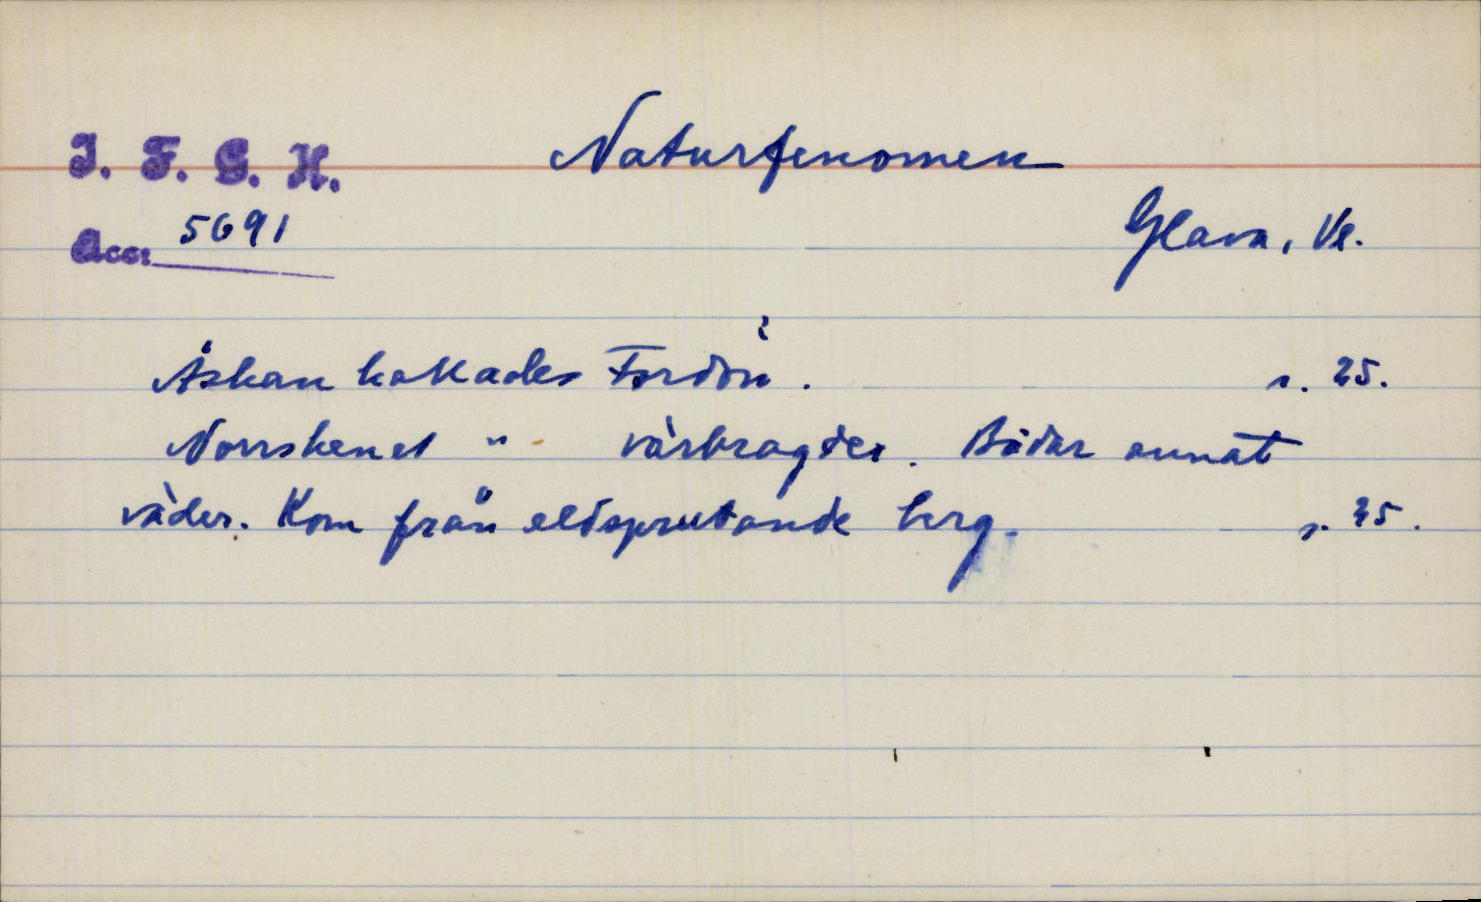 I. F. G. H.
Naturfenomen
Acc: 5691
Glava, Vr.
Åskan kallades Fordön. s. 25.
Norrskenet " vårbragder. Bådar annat
väder. Kom från eldsprutande berg. s. 35.